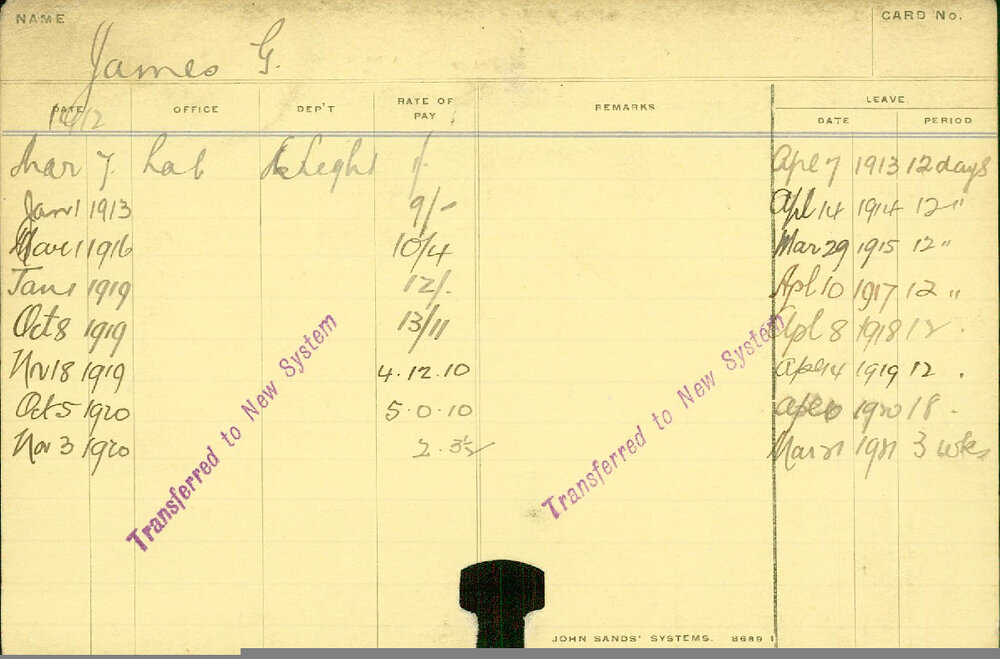 NAME
CARD No.
James G.
DATE OFFICE DEP'T RATE OF PAY REMARKS LEAVE
DATE PERIOD
Mar 7 Lab Apl 7 1913 12 days
Jan 1 1913 9/- Apl 14 1914 12 "
Mar 1 1916 10/4 Mar 29 1915 12 "
Jan 1 1919 12/- Apl 10 1917 12 "
Oct 8 1919 13/11 Apl 8 1918 12 .
Nov 18 1919 4.12.10 Apl 14 1919 12 .
Oct 5 1920 5.0.10 1920 18 .
Nov 3 1920 2.3½ Mar 21 1921 3 wks
Transferred to New System
Transferred to New System
JOHN SANDS' SYSTEMS. 8689